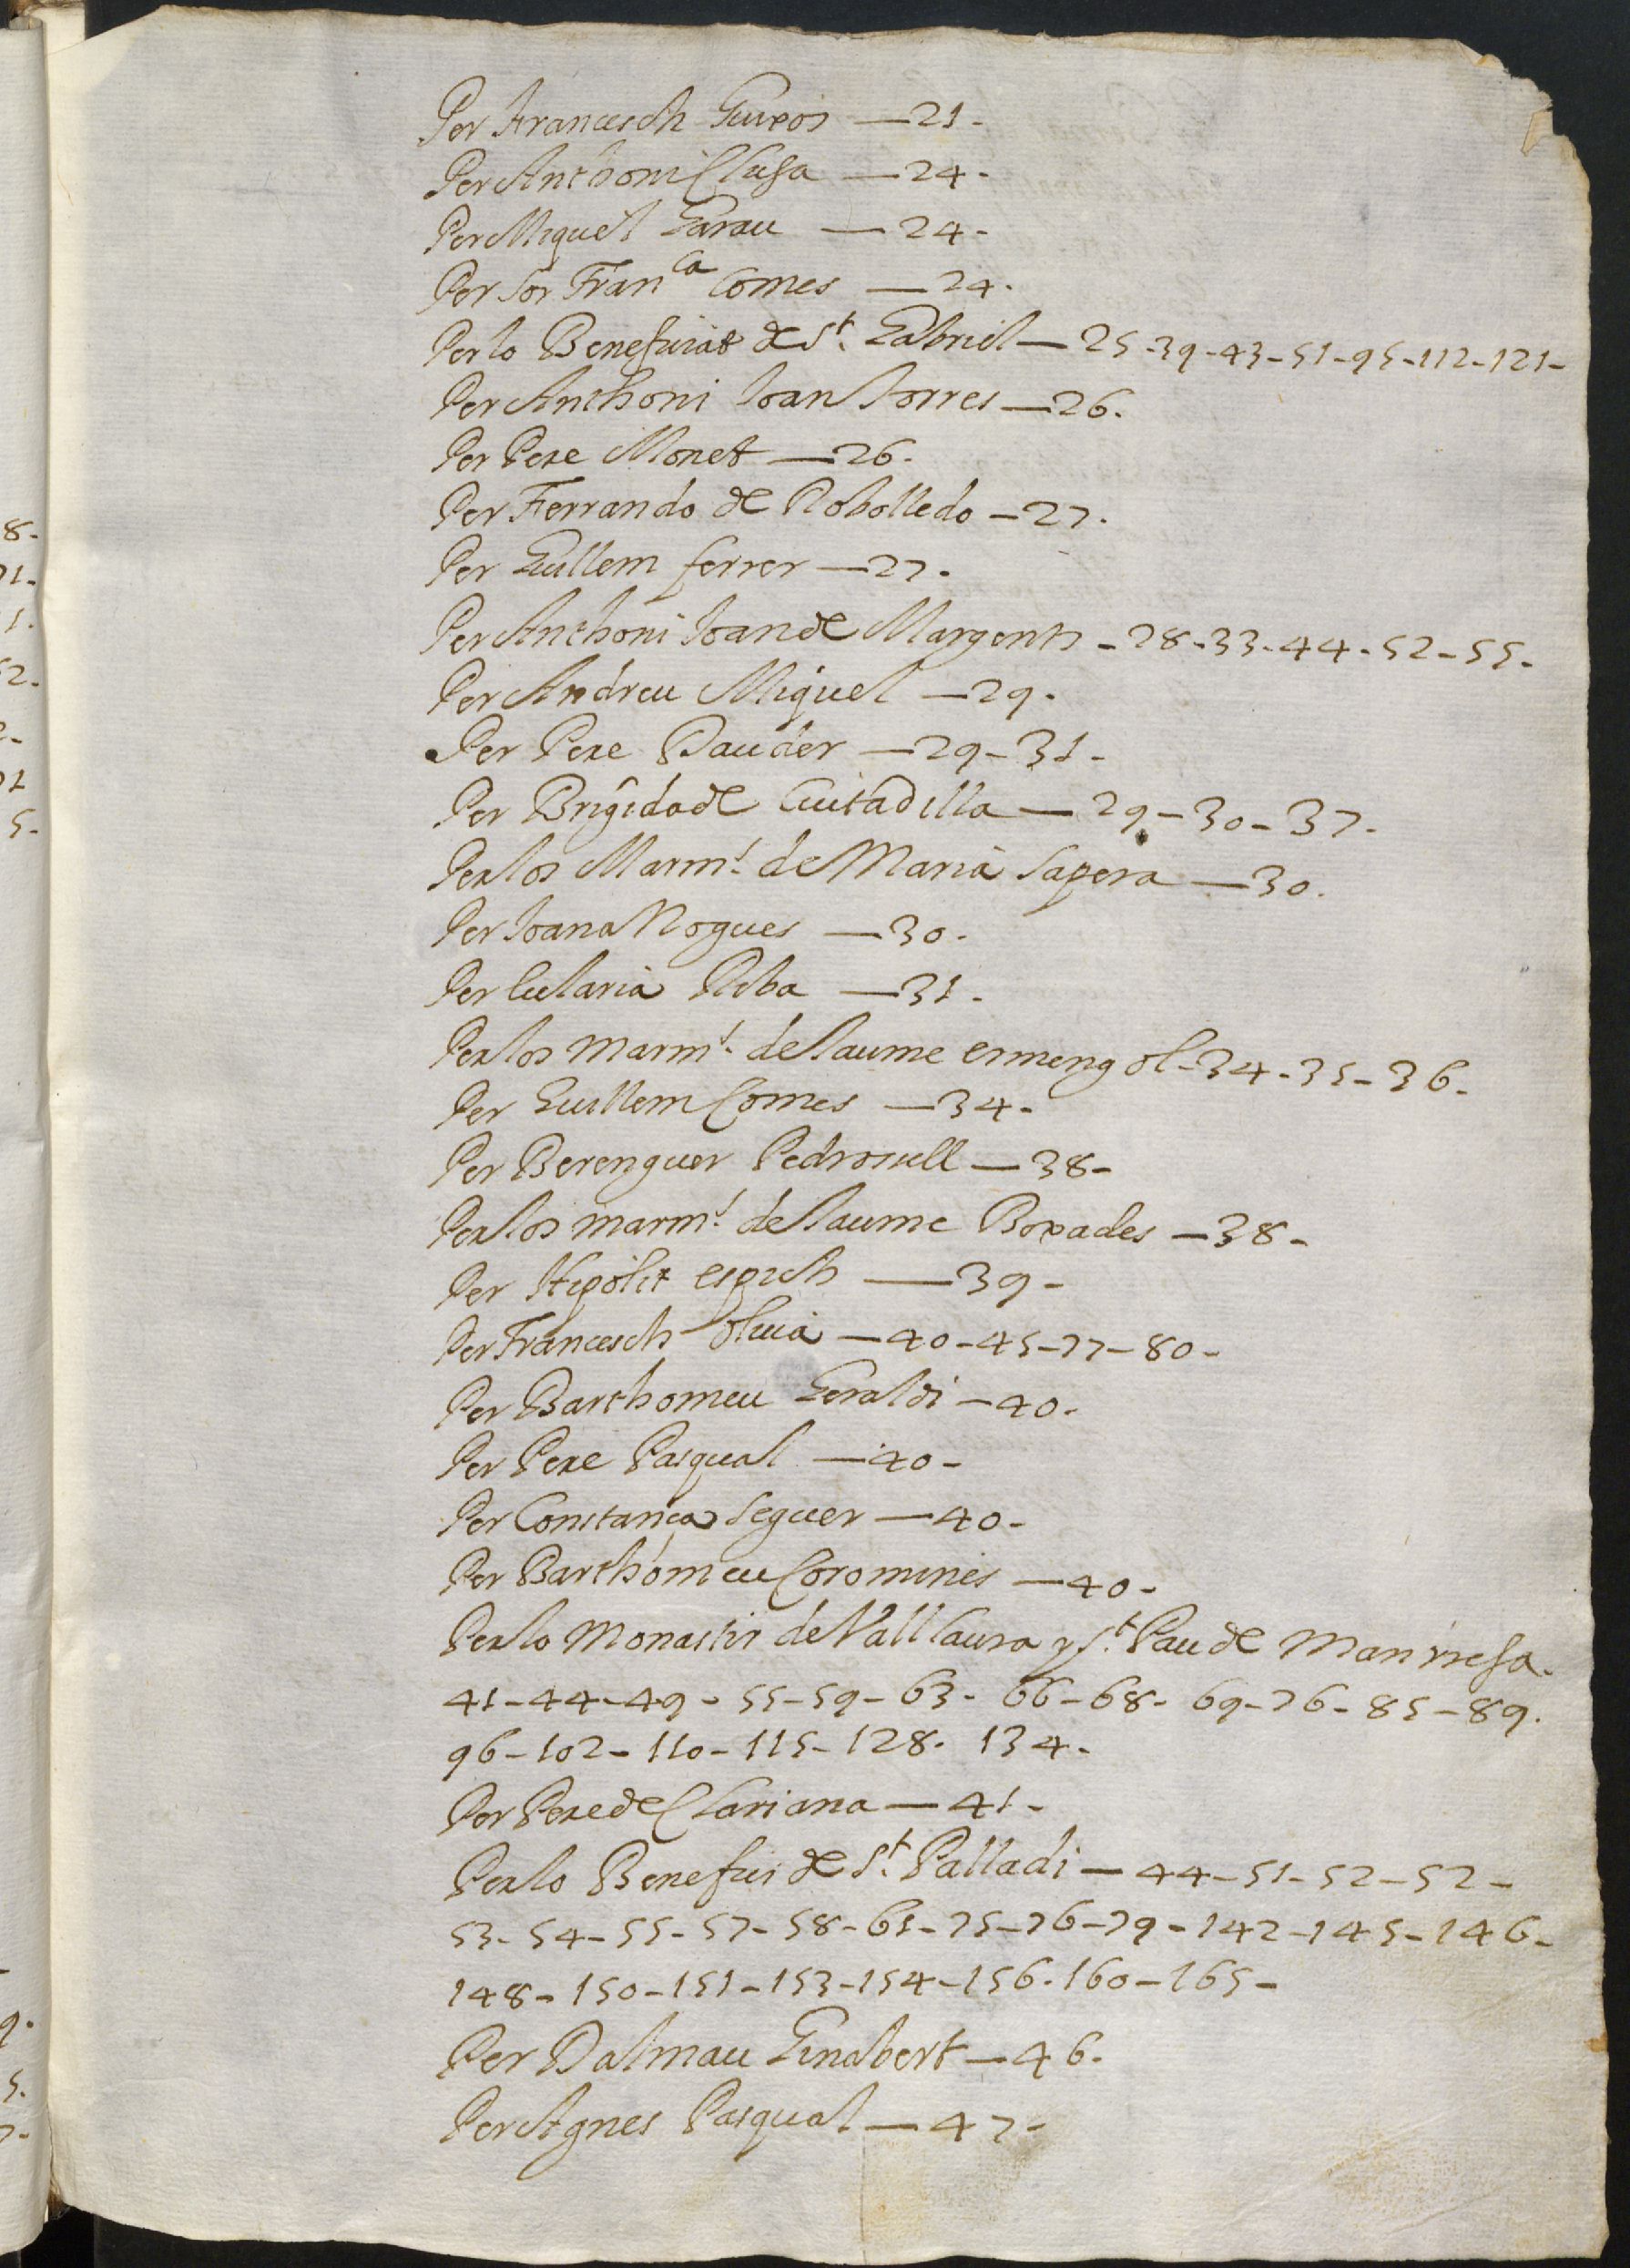 Per Francesch Guixos — 21.
Per Anthoni Clusa — 24.
Per Miquel Garau — 24.
Per Sor Fran^ca Comes — 24.
Per lo Beneficiat de S^t. Gabriel — 25-39-43-51-95-112-121-
Per Anthoni Joan Torres — 26.
Per Pere Monet — 26.
Per Ferrando de Robolledo — 27.
Per Guillem ferrer — 27.
Per Anthoni Joan de Margens - 28-33-44-52-55.
Per Andreu Miquel — 29.
Per Pere Dauder — 29-31-
Per Brigida de Ciutadilla — 29-30-37-
Per los Marm^s. de Maria Sapera — 30.
Per Joana Nogues — 30.
Per Eularia Riba — 31.
Per los marm^s. de Jaume ermengol-34-35-36.
Per Guillem Comes — 34-
Per Berenguer Pedrosell — 38-
Per los marm^s. de Jaume Boxades — 38-
Per Hipolit espich — 39-
Per Francesch oliua — 40-45-77-80-
Per Barthomeu Geraldi — 40.
Per Pere Pasqual — 40-
Per Constança Seguer — 40-
Per Barthomeu Coromines — 40-
Per lo Monastir de Valllaura y S^t. Pau de Manrresa.
41-44-49-55-59-63-66-68-69-76-85-89.
96-102-110-115-128. 134-
Per Pere de Clariana — 41-
Per lo Benefici de S^t. Palladi — 44-51-52-52-
53-54-55-57-58-61-75-76-79-142-145-146-
148-150-151-153-154-156-160-165-
Per Dalmau Ginabert — 46.
Per Agnes Pasqual — 47-
8-
71-
1.
52-
2-
71
5-
9.
5.
7-